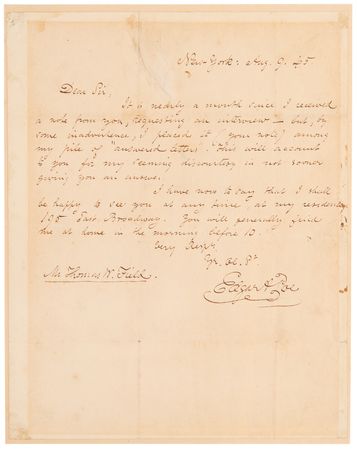 New-York: Aug. 9. 45.
Dear Sir,
It is nearly a month since I received
a note from you, requesting an interview — but, by
some inadvertence, I placed it (your note) among
my pile of "answered letters". This will account
to you for my seeming discourtesy in not sooner
giving you an answer.
I have now to say that I shall
be happy to see you at any time at my residence
195 East Broadway. You will generally find
me at home in the morning before 10.
Very Respy.
Yr. Ob. St.
Edgar A Poe
Mr Thomas W. Field.